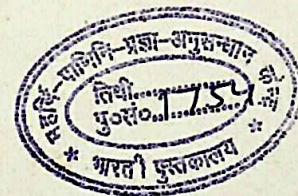 महर्षि-पाणिनि-प्रज्ञा-अनुसन्धान
तिथी..............
पु०सं०...1754...
* भारती पुस्तकालय *